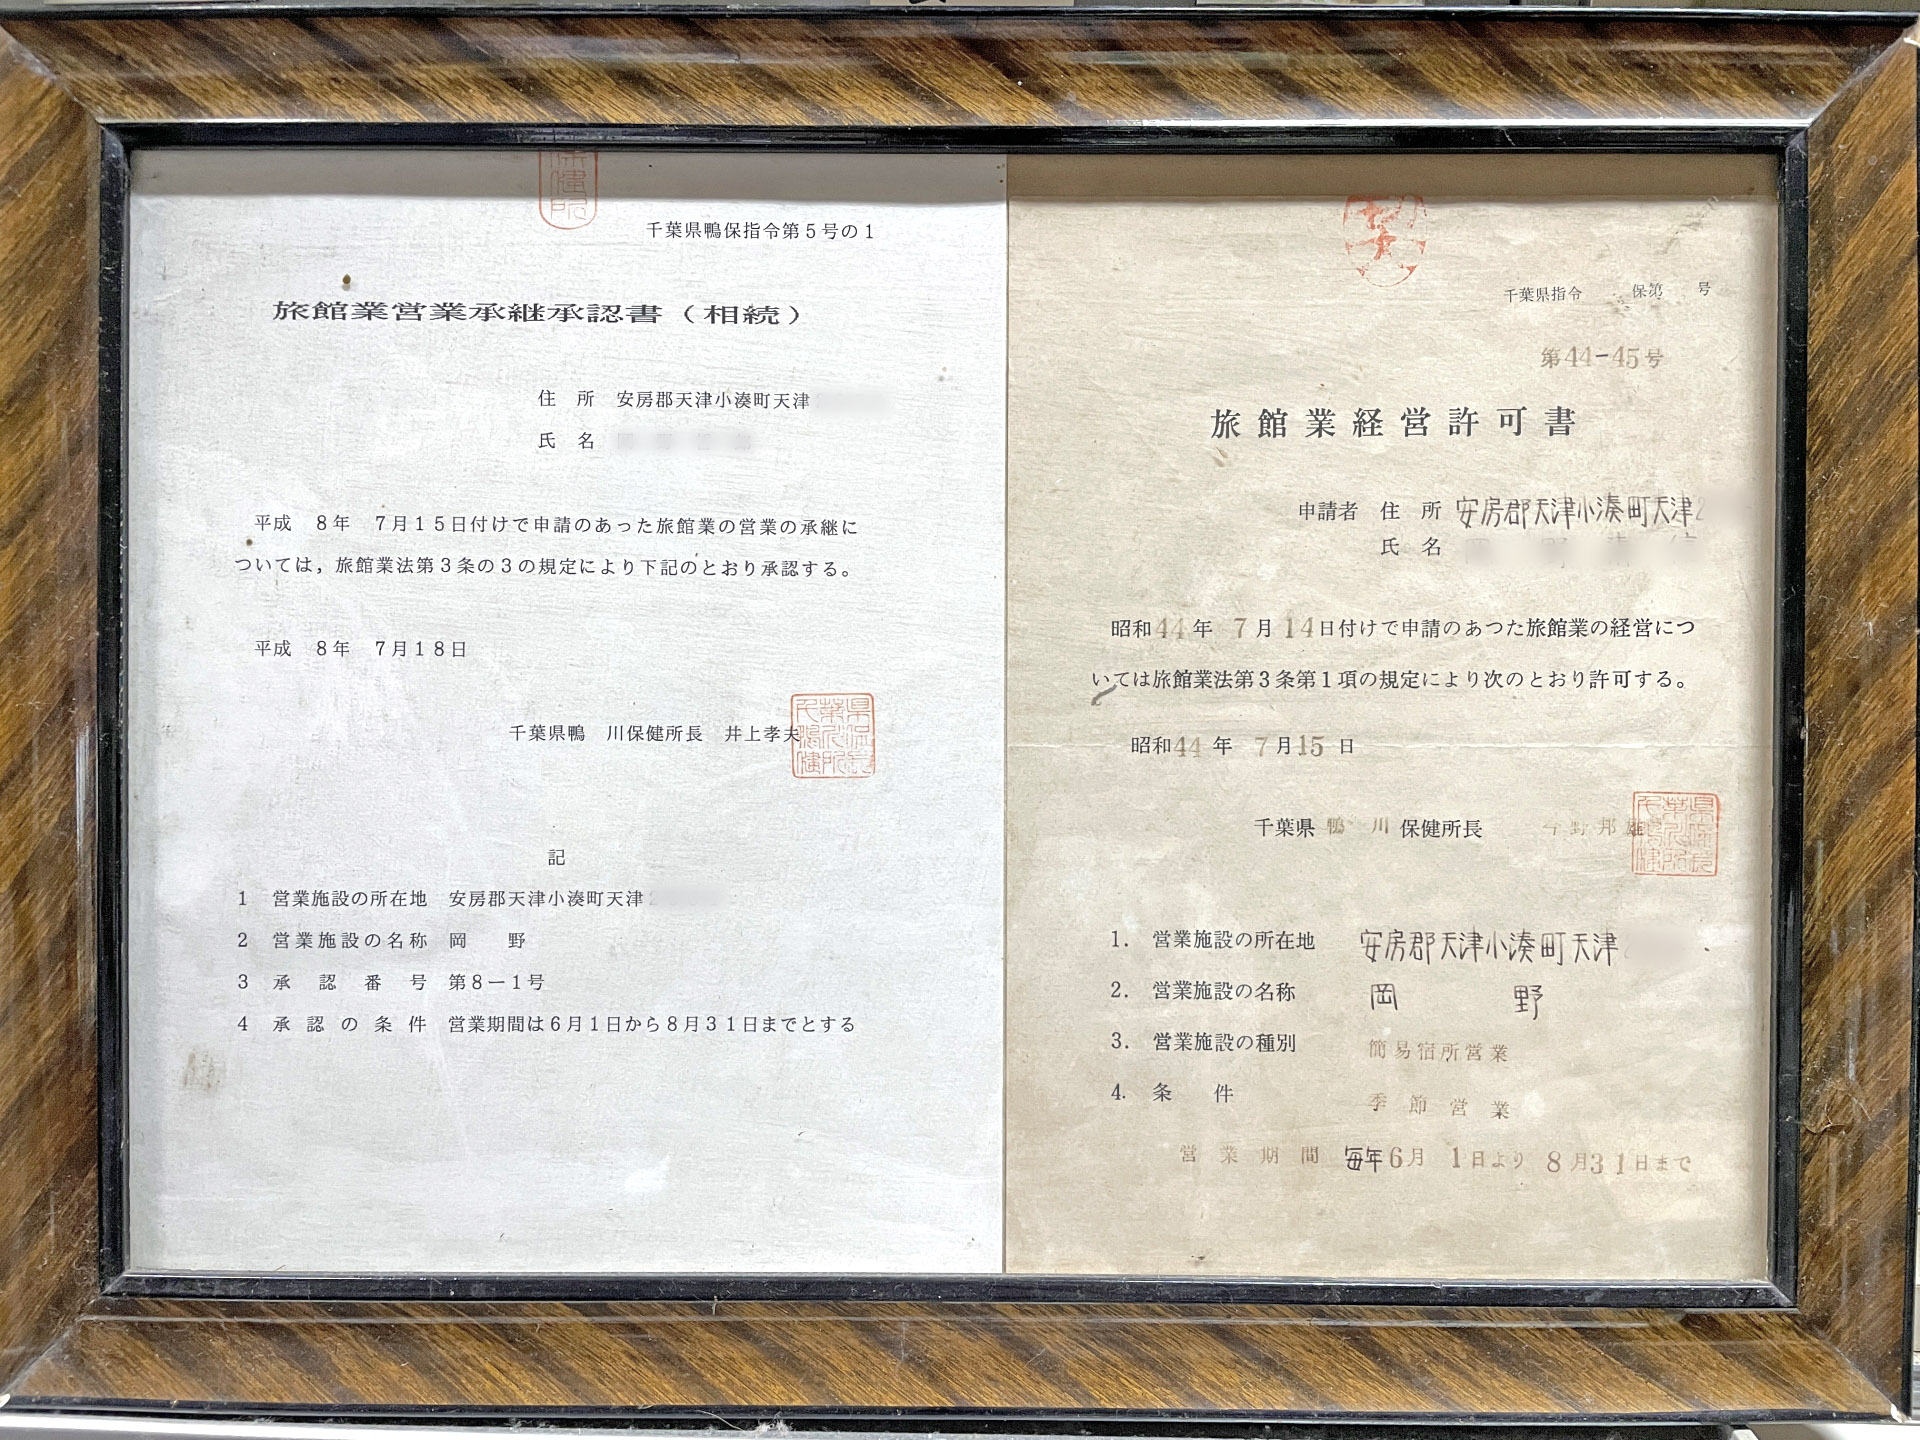 千葉県鴨保指令第5号の1
旅館業営業承継承認書(相続)
住 所 安房郡天津小湊町天津
氏 名
平成 8年 7月15日付けで申請のあった旅館業の営業の承継に
ついては，旅館業法第3条の3の規定により下記のとおり承認する。
平成 8年 7月18日
千葉県鴨 川保健所長 井上孝夫
記
1 営業施設の所在地 安房郡天津小湊町天津
2 営業施設の名称 岡 野
3 承認番号 第8－1号
4 承認の条件 営業期間は6月1日から8月31日までとする
千葉県指令 保第 号
第44-45号
旅館業経営許可書
申請者 住 所 安房郡天津小湊町天津2
氏 名
昭和44年 7月14日付けで申請のあつた旅館業の経営につ
いては旅館業法第3条第1項の規定により次のとおり許可する。
昭和44年 7月15日
千葉県 鴨 川 保健所長 今野邦雄
1. 営業施設の所在地 安房郡天津小湊町天津
2. 営業施設の名称 岡 野
3. 営業施設の種別 簡易宿所営業
4. 条 件 季節営業
営業期間 毎年6月 1日より 8月31日まで